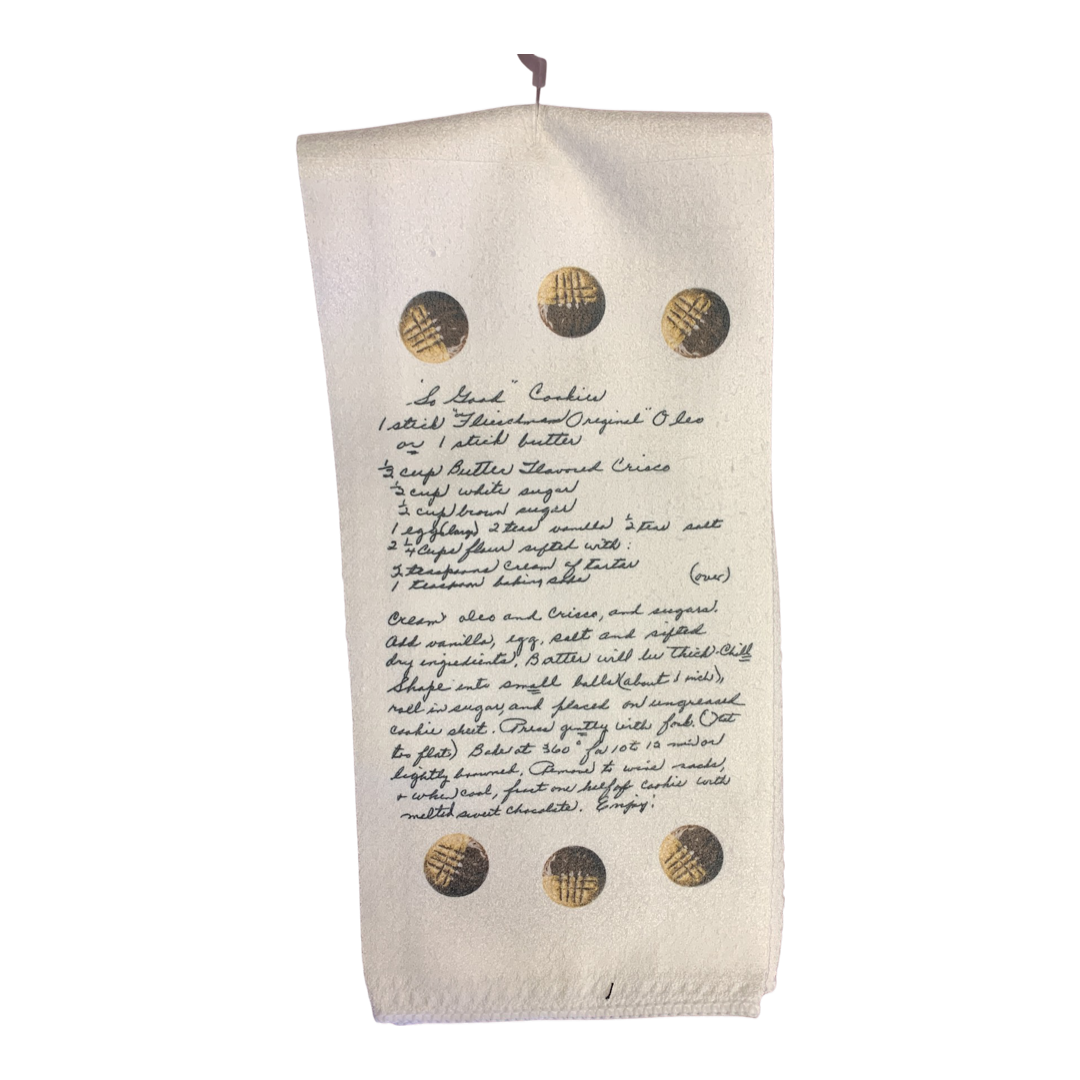 "So Good" Cookies
1 stick "Fleischman Original" Oleo
or 1 stick butter
½ cup Butter Flavored Crisco
½ cup white sugar
½ cup brown sugar
1 egg (large) 2 teas vanilla ½ teas salt
2 ¼ cups flour sifted with:
2 teaspoons cream of tartar
1 teaspoon baking soda (over)
Cream oleo and Crisco, and sugars.
Add vanilla, egg, salt and sifted
dry ingredients. Batter will be thick. Chill
Shape into small balls (about 1 inch),
roll in sugar, and placed on ungreased
cookie sheet. Press gently with fork. (Not
too flat) Bake at 360° for 10 to 12 min or
lightly browned. Remove to wire racks,
+ when cool, frost one half of cookie with
melted sweet chocolate. Enjoy!